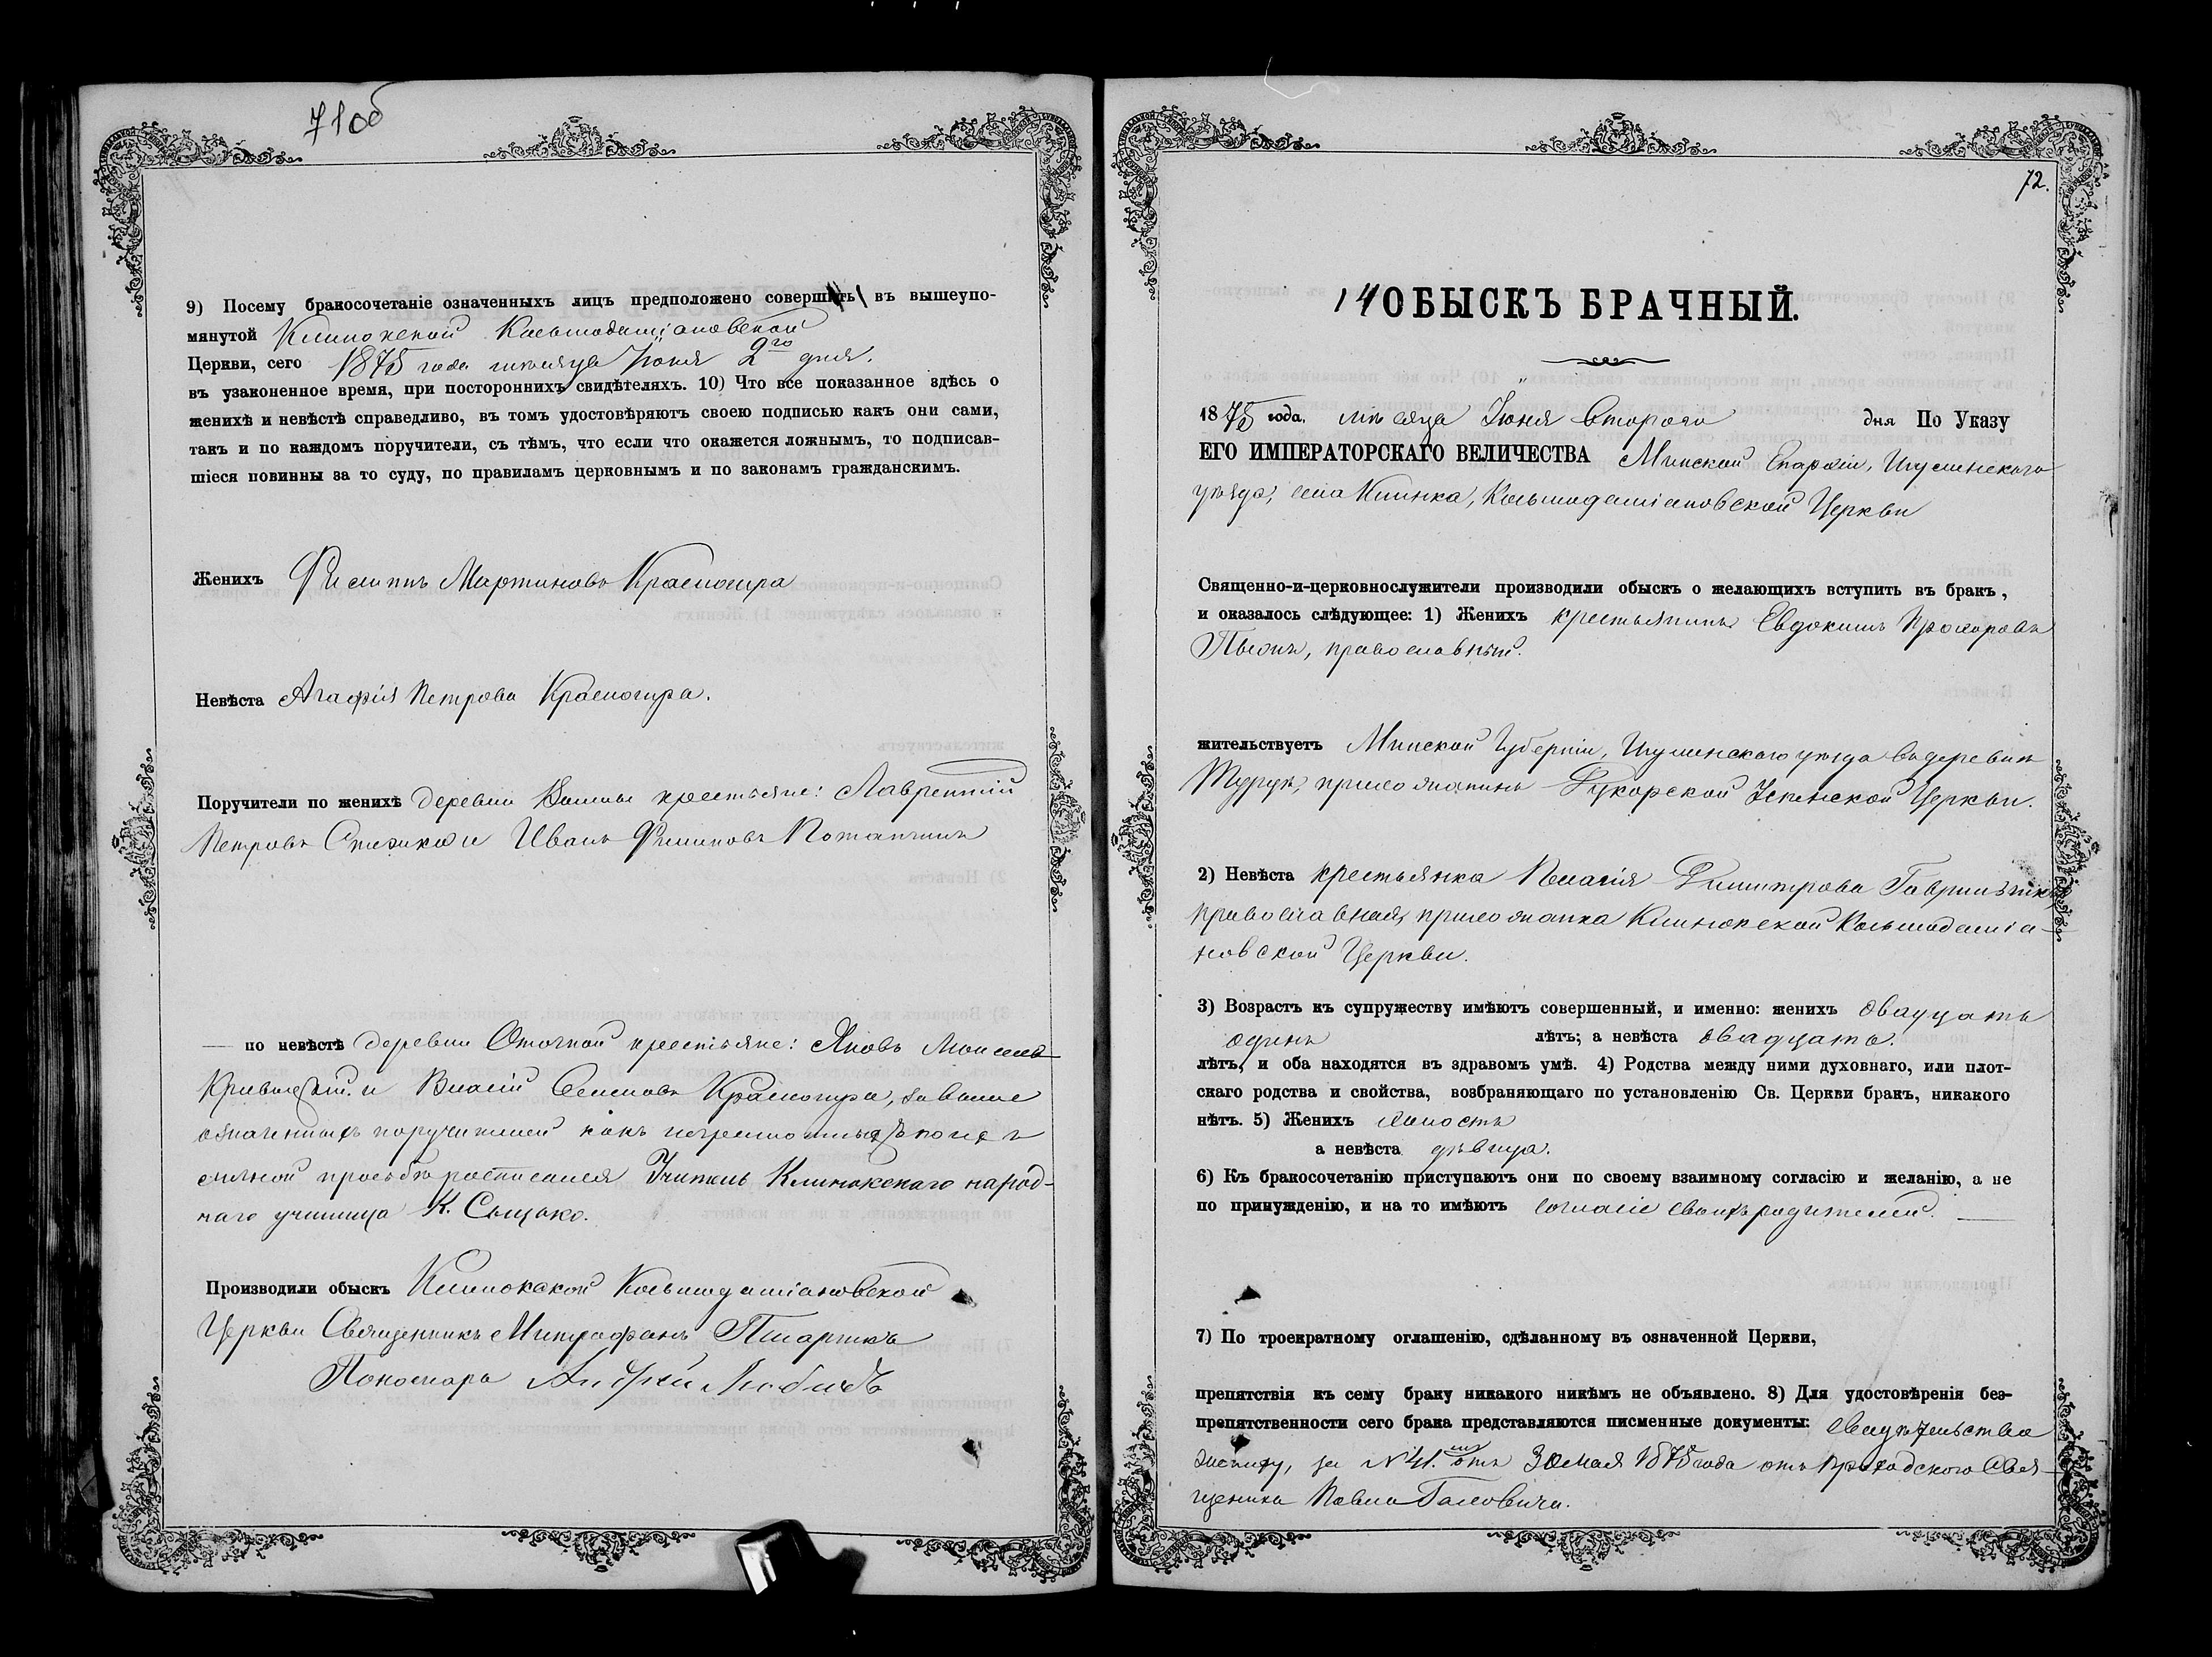 71об
9) Посему бракосочетаніе означенныхъ лицъ предположено совершить въ вышеупо-
мянутой Клинокской Косьмодаміановской
Церкви, сего 1875 года мѣсяца Іюня 2го дня.
въ узаконенное время, при постороннихъ свидѣтеляхъ. 10) Что все показанное здѣсь о
женихѣ и невѣстѣ справедливо, въ томъ удостовѣряютъ своею подписью какъ они сами,
такъ и по каждомъ поручители, съ тѣмъ, что если что окажется ложнымъ, то подписав-
шіеся повинны за то суду, по правиламъ церковнымъ и по законамъ гражданскимъ.
Женихъ Филиппъ Мартиновъ Красногира
Невѣста Агафія Петрова Красногира.
Поручители по женихѣ деревни крестьяне: Лаврентій
Петровъ и Иванъ Филиповъ
— по невѣстѣ деревни Оточной крестьяне: Яковъ Моисеевъ
и Власій Семеновъ Красногира, а вмѣсто
означенныхъ поручителей какъ неграмотныхъ по ихъ
личной просьбѣ росписался Учитель Клинокскаго народ-
наго училища К. Сыцько.
Производили обыскъ Клинокской Косьмодаміановской
Церкви Священникъ Митрофанъ
Пономарь Андрей
72.
14 ОБЫСКЪ БРАЧНЫЙ.
1875 года. мѣсяца Іюня Втораго дня По Указу
ЕГО ИМПЕРАТОРСКАГО ВЕЛИЧЕСТВА Минской Епархіи, Игуменскаго
уѣзда, села Клинка, Косьмодаміановской Церкви
Священно-и-церковнослужители производили обыскъ о желающихъ вступить въ бракъ,
и оказалось слѣдующее: 1) Женихъ крестьянинъ Евдокимъ Прохоровъ
православный.
жительствуетъ Минской Губерніи, Игуменскаго уѣзда въ деревнѣ
Турцѣ, прихожанинъ Дукорской Успенской Церкви.
2) Невѣста крестьянка Пелагія Димитрова Гаврильчикъ
православная, прихожанка Клинокской Косьмодаміа-
новской Церкви.
3) Возрастъ къ супружеству имѣютъ совершенный, и именно: женихъ двадцать
одинъ лѣтъ; а невѣста двадцать.
лѣтъ, и оба находятся въ здравомъ умѣ. 4) Родства между ними духовнаго, или плот-
скаго родства и свойства, возбраняющаго по установленію Св. Церкви бракъ, никакого
нѣтъ. 5) Женихъ холостъ
а невѣста дѣвица.
6) Къ бракосочетанію приступаютъ они по своему взаимному согласію и желанію, а не
по принужденію, и на то имѣютъ согласіе своихъ родителей.
7) По троекратному оглашенію, сдѣланному въ означенной Церкви,
препятствія къ сему браку никакого никѣмъ не объявлено. 8) Для удостовѣренія без-
препятственности сего брака представляются писменные документы: свидѣтельство
жениху, за № 41. отъ 30 мая 1875 года отъ приходскаго Свя-
щеника Павла